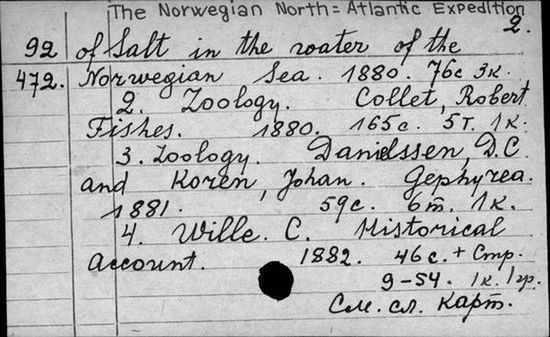 The Norwegian North=Atlantic Expedition
2.
92 of Salt in the water of the
472. Norwegian Sea. 1880. 76с 3к.
2. Zoology. Collet, Robert
Fishes. 1880. 165с. 5т. 1к.
3. Zoology. Danielssen, D.C
and Koren, Johan. Gephyrea.
1881. 59с. 6т. 1к.
4. Wille. C. Historical
Account. 1882. 46с. + Стр.
9-54. 1к. 1гр.
См. сл. карт.